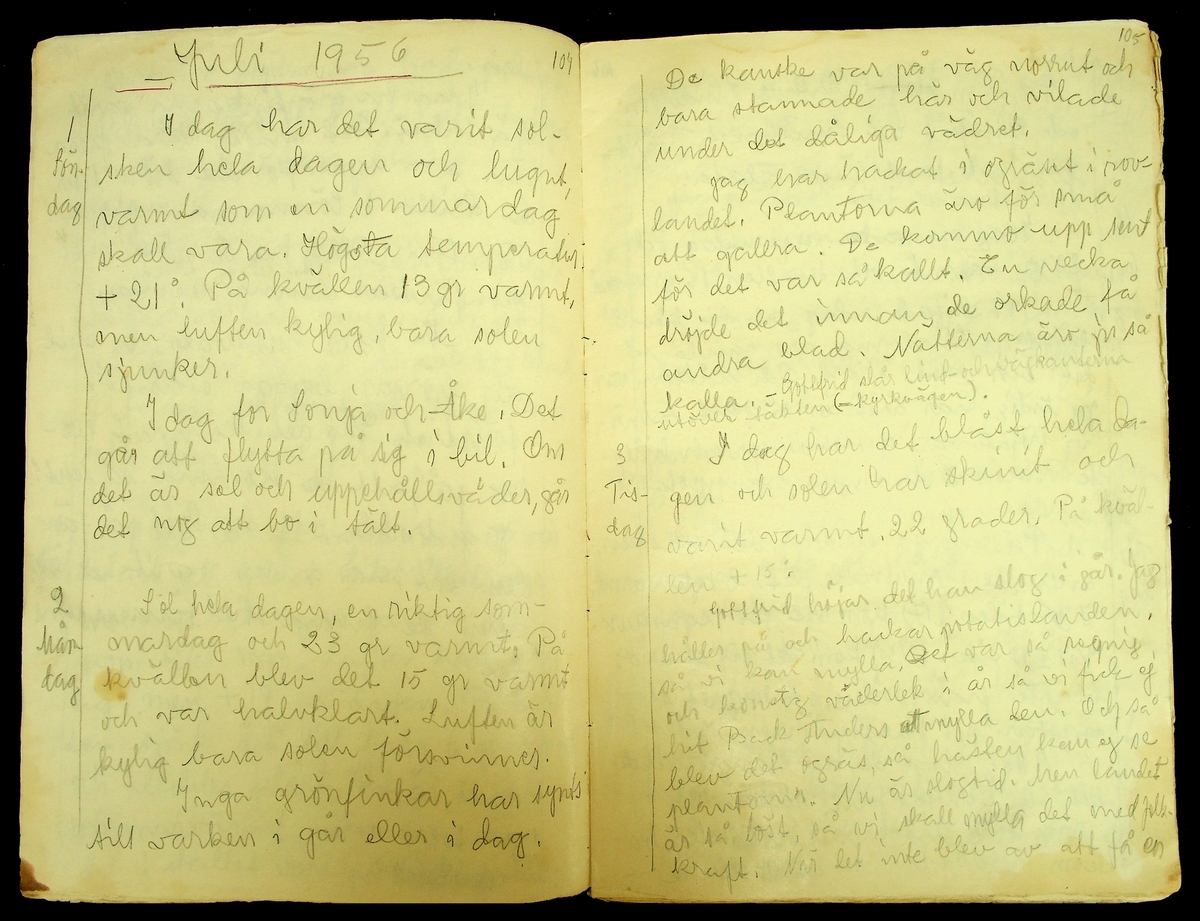 Juli 1956
104
1
Sön-
dag
I dag har det varit sol-
sken hela dagen och lugnt,
varmt som en sommardag
skall vara. Högsta temperatur
+ 21°. På kvällen 13 gr varmt,
men luften kylig, bara solen
sjunker.
I dag for Sonja och Åke. Det
går att flytta på sig i bil. Om
det är sol och uppehållsväder, går
det nog att bo i tält.
2
Mån-
dag
Sol hela dagen, en riktig som-
mardag och 23 gr varmt. På
kvällen blev det 15 gr varmt
och var halvklart. Luften är
kylig bara solen försvinner.
Inga grönfinkar har synts
till varken i går eller i dag.
105
De kanske var på väg norrut och
bara stannade här och vilade
under det dåliga vädret.
Jag har hackat i ogräset i rov-
landet. Plantorna äro för små
att gallra. De kommo upp sent
för det var så kallt. En vecka
dröjde det innan de orkade få
andra blad. Nätterna äro ju så
kalla. – Gottfrid slår lind- och vägkanterna
utöver täkten (– kyrkvägen).
3
Tis-
dag
I dag har det blåst hela da-
gen och solen har skinit och
varit varmt. 22 grader. På kväl-
len + 15°.
Gottfrid höjar det han slog i går. Jag
håller på och hackar potatislanden,
så vi kan mylla. Det var så regnig
och konstig väderlek i år så vi fick ej
hit Back Anders att mylla den. Och så
blev det ogräs, så hästen kan ej se
plantorna. Nu är slogtid. Men landet
är så löst, så vi skall mylla det med folk-
kraft. När det inte blev av att få en